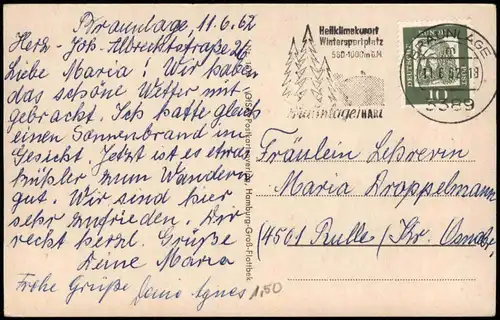 Braunlage, 11.6.62
Herz-Joh-Albrechtstraße 26
Liebe Maria! Wir haben
das schöne Wetter mit
gebracht. Ich hatte gleich
einen Sonnenbrand im
Gesicht. Jetzt ist es etwas
kühler zum Wandern
gut. Wir sind hier
sehr zufrieden. Dir
recht herzl. Grüße
Deine Maria
Frohe Grüße Agnes
1,50
Postkartenverlag Hamburg-Groß-Flottbek
Heilklimakurort
Wintersportplatz
560-1000 m ü.M
Braunlage/HARZ
BRAUNLAGE
11.6.62-18
3389
DEUTSCHE
10
Fräulein Lehrerin
Maria Drappelmann
(4501 Rulle/Kr. Osnabr.